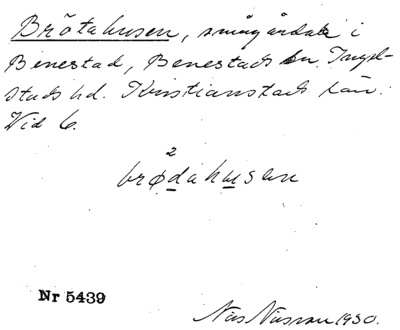 Brötahusen, smågårdar i
Benestad, Benestads sn. Ingel-
stads hd. Kristianstads län.
Vid 6.
2
brødahusen
Nr 5439
Nils Nilsson 1930.